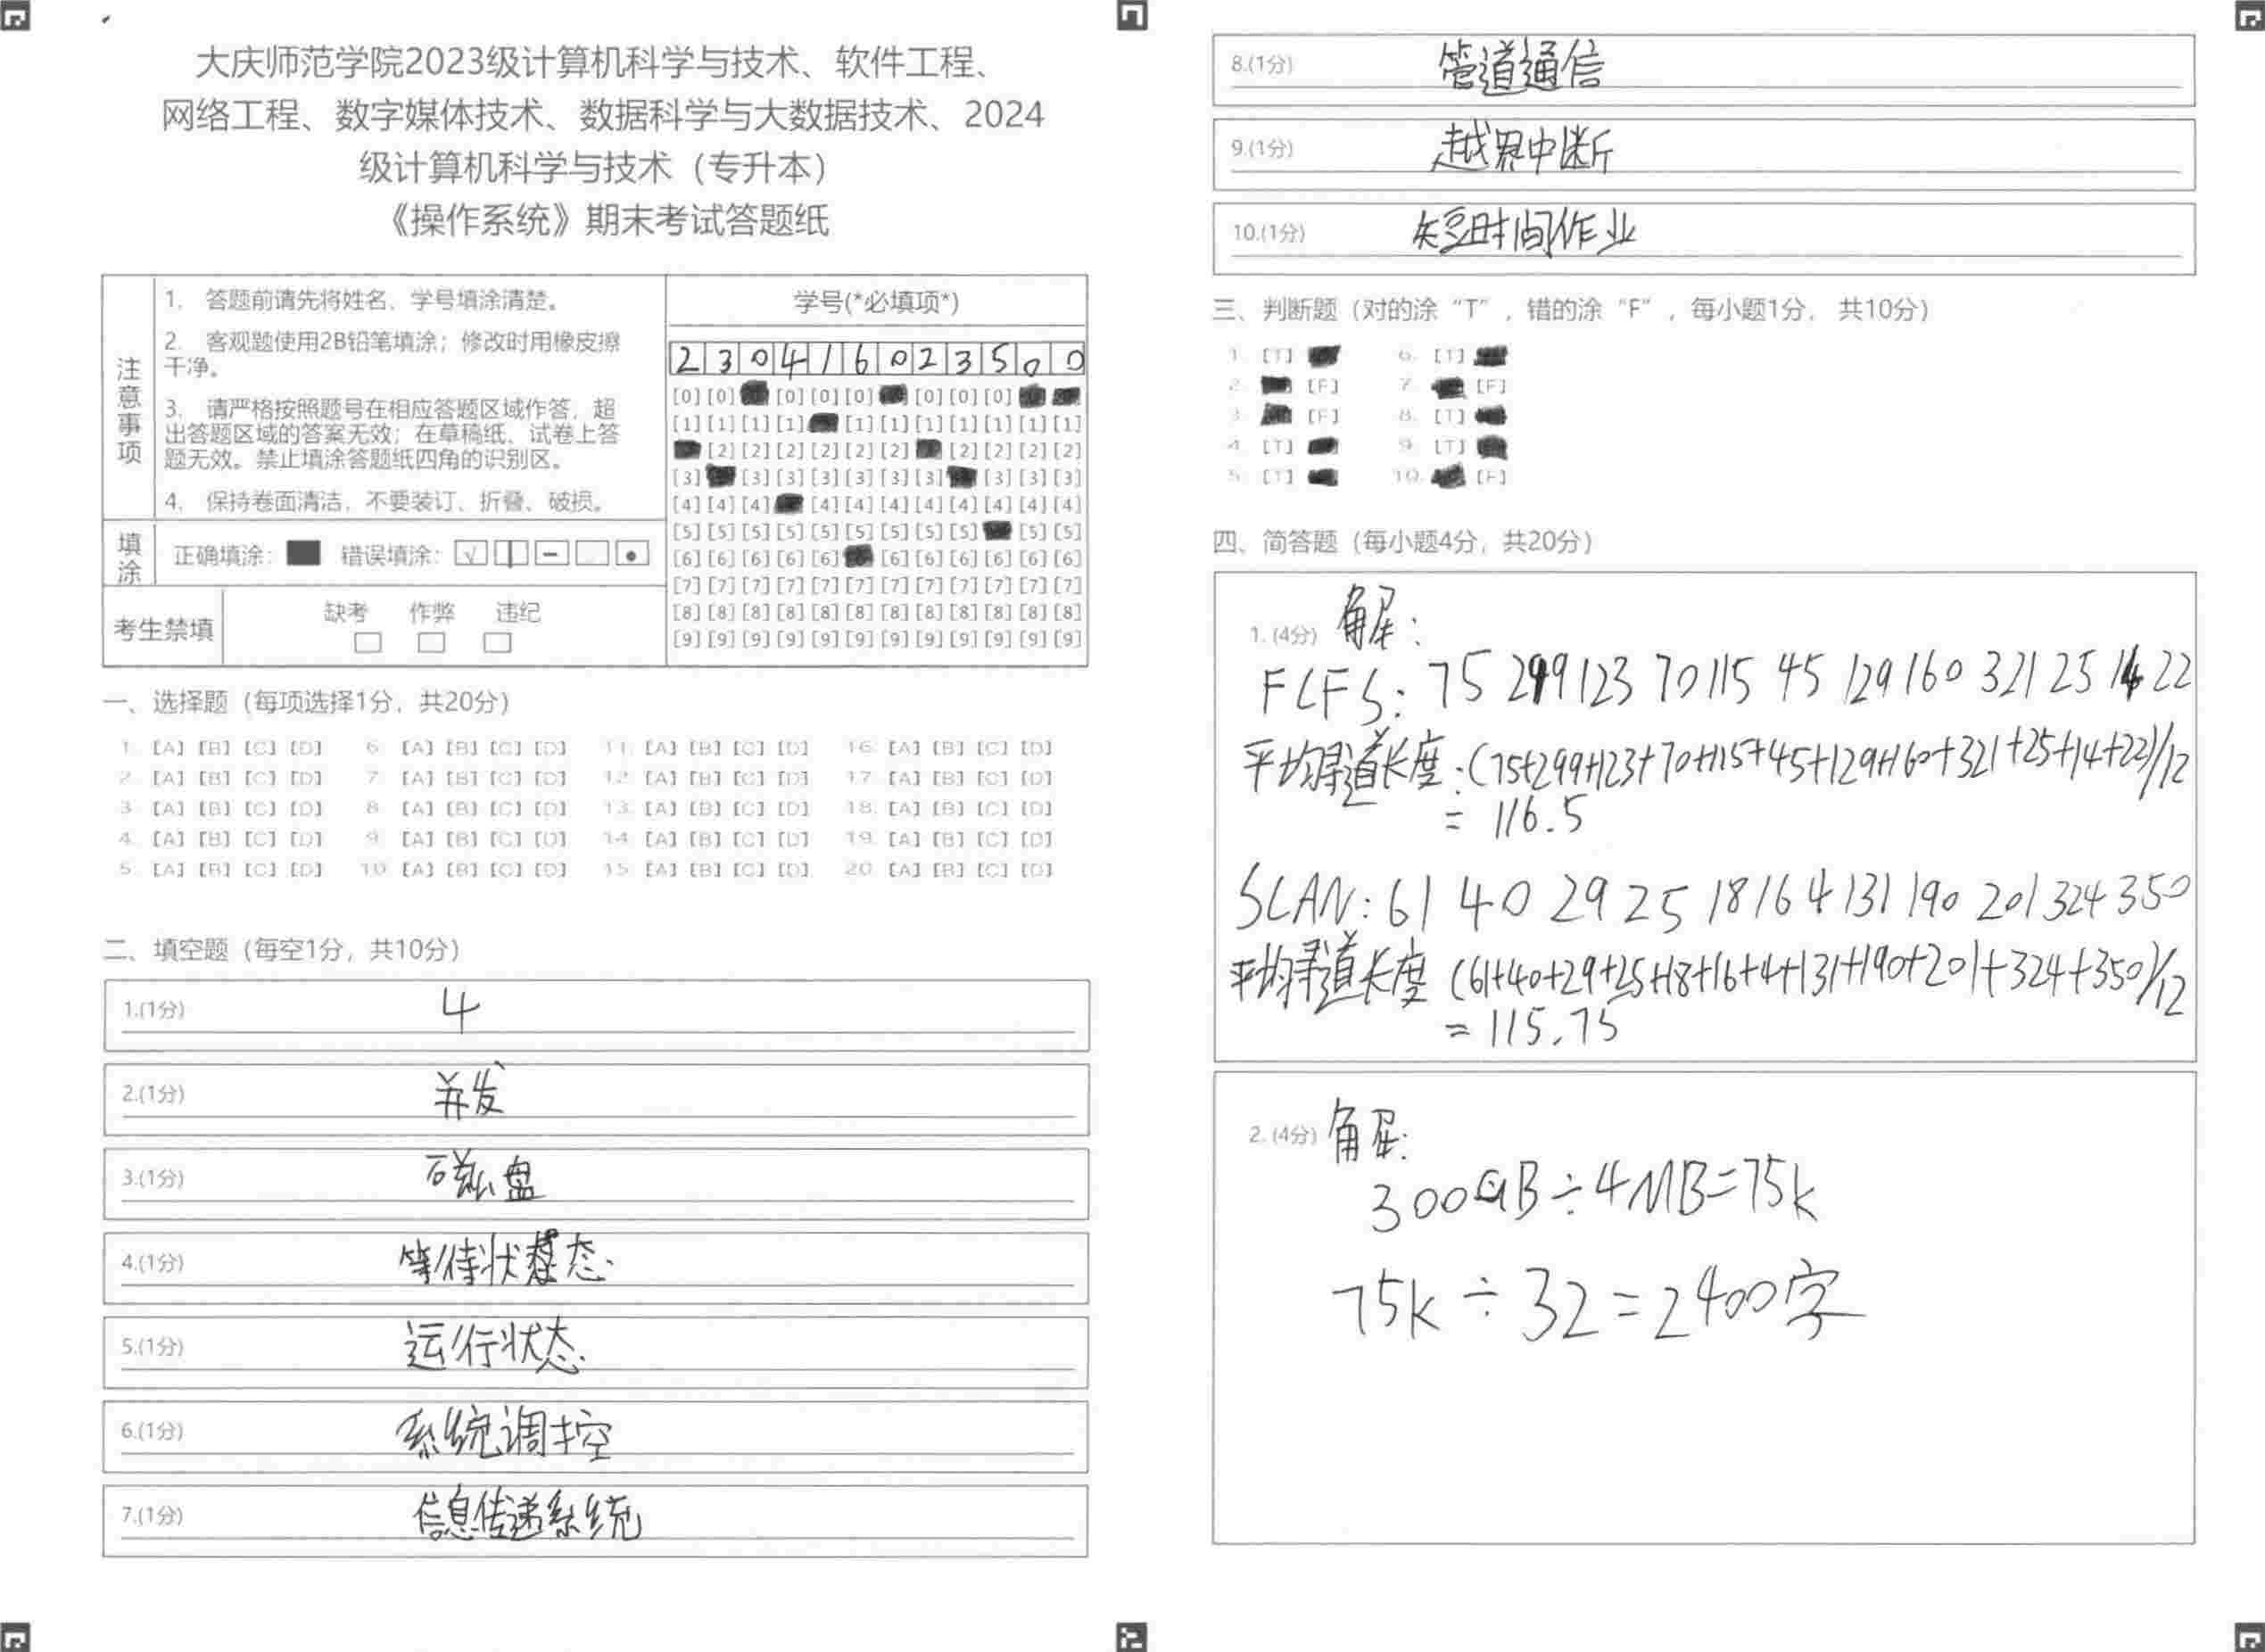 大庆师范学院2023级计算机科学与技术、软件工程、
网络工程、数字媒体技术、数据科学与大数据技术、2024
级计算机科学与技术（专升本）
《操作系统》期末考试答题纸
注意事项
1. 答题前请先将姓名、学号填涂清楚。
2. 客观题使用2B铅笔填涂；修改时用橡皮擦
干净。
3. 请严格按照题号在相应答题区域作答，超
出答题区域的答案无效；在草稿纸、试卷上答
题无效。禁止填涂答题纸四角的识别区。
4. 保持卷面清洁，不要装订、折叠、破损。
填涂 正确填涂： 错误填涂：
考生禁填 缺考 作弊 违纪
学号(*必填项*)
2 3 0 4 1 6 0 2 3 5 0 0
[0] [0] [0] [0] [0] [0] [0] [0]
[1] [1] [1] [1] [1] [1] [1] [1] [1] [1] [1]
[2] [2] [2] [2] [2] [2] [2] [2] [2] [2]
[3] [3] [3] [3] [3] [3] [3] [3] [3] [3]
[4] [4] [4] [4] [4] [4] [4] [4] [4] [4] [4]
[5] [5] [5] [5] [5] [5] [5] [5] [5] [5] [5]
[6] [6] [6] [6] [6] [6] [6] [6] [6] [6] [6]
[7] [7] [7] [7] [7] [7] [7] [7] [7] [7] [7] [7]
[8] [8] [8] [8] [8] [8] [8] [8] [8] [8] [8] [8]
[9] [9] [9] [9] [9] [9] [9] [9] [9] [9] [9] [9]
一、选择题（每项选择1分，共20分）
1. [A] [B] [C] [D] 6. [A] [B] [C] [D] 11. [A] [B] [C] [D] 16. [A] [B] [C] [D]
2. [A] [B] [C] [D] 7. [A] [B] [C] [D] 12. [A] [B] [C] [D] 17. [A] [B] [C] [D]
3. [A] [B] [C] [D] 8. [A] [B] [C] [D] 13. [A] [B] [C] [D] 18. [A] [B] [C] [D]
4. [A] [B] [C] [D] 9. [A] [B] [C] [D] 14. [A] [B] [C] [D] 19. [A] [B] [C] [D]
5. [A] [B] [C] [D] 10. [A] [B] [C] [D] 15. [A] [B] [C] [D] 20. [A] [B] [C] [D]
二、填空题（每空1分，共10分）
1.(1分) 4
2.(1分) 并发
3.(1分) 磁盘
4.(1分) 等待状态
5.(1分) 运行状态
6.(1分) 系统调控
7.(1分) 信息传递系统
8.(1分) 管道通信
9.(1分) 越界中断
10.(1分) 短时间作业
三、判断题（对的涂“T”，错的涂“F”，每小题1分， 共10分）
1. [T] 6. [T]
2. [F] 7. [F]
3. [F] 8. [T]
4. [T] 9. [T]
5. [T] 10. [F]
四、简答题（每小题4分，共20分）
1. (4分) 解：
FCFS: 75 299 123 70 115 45 129 160 321 25 14 22
平均寻道长度：(75+299+123+70+115+45+129+160+321+25+14+22)/12
= 116.5
SCAN: 61 40 29 25 18 16 4 131 190 201 324 350
平均寻道长度 (61+40+29+25+18+16+4+131+190+201+324+350)/12
= 115.75
2. (4分) 解：
300GB÷4MB=75k
75k÷32=2400字